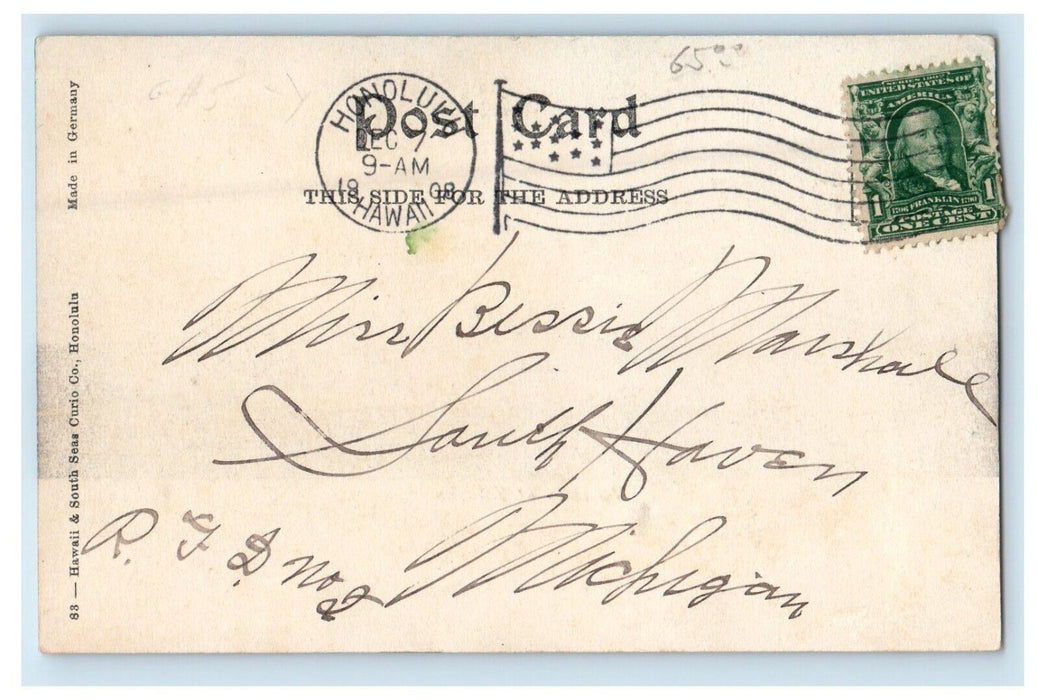 65.00
Post Card
THIS SIDE FOR THE ADDRESS
HONOLULU
DEC 7
9-AM
1908
HAWAII
SERIES 1902
UNITED STATES OF
AMERICA
1 1
1706 FRANKLIN 1790
POSTAGE
ONE CENT
Made in Germany
83 — Hawaii & South Seas Curio Co., Honolulu
Miss Bessie Marshall
South Haven
Michigan
R. F D no 2